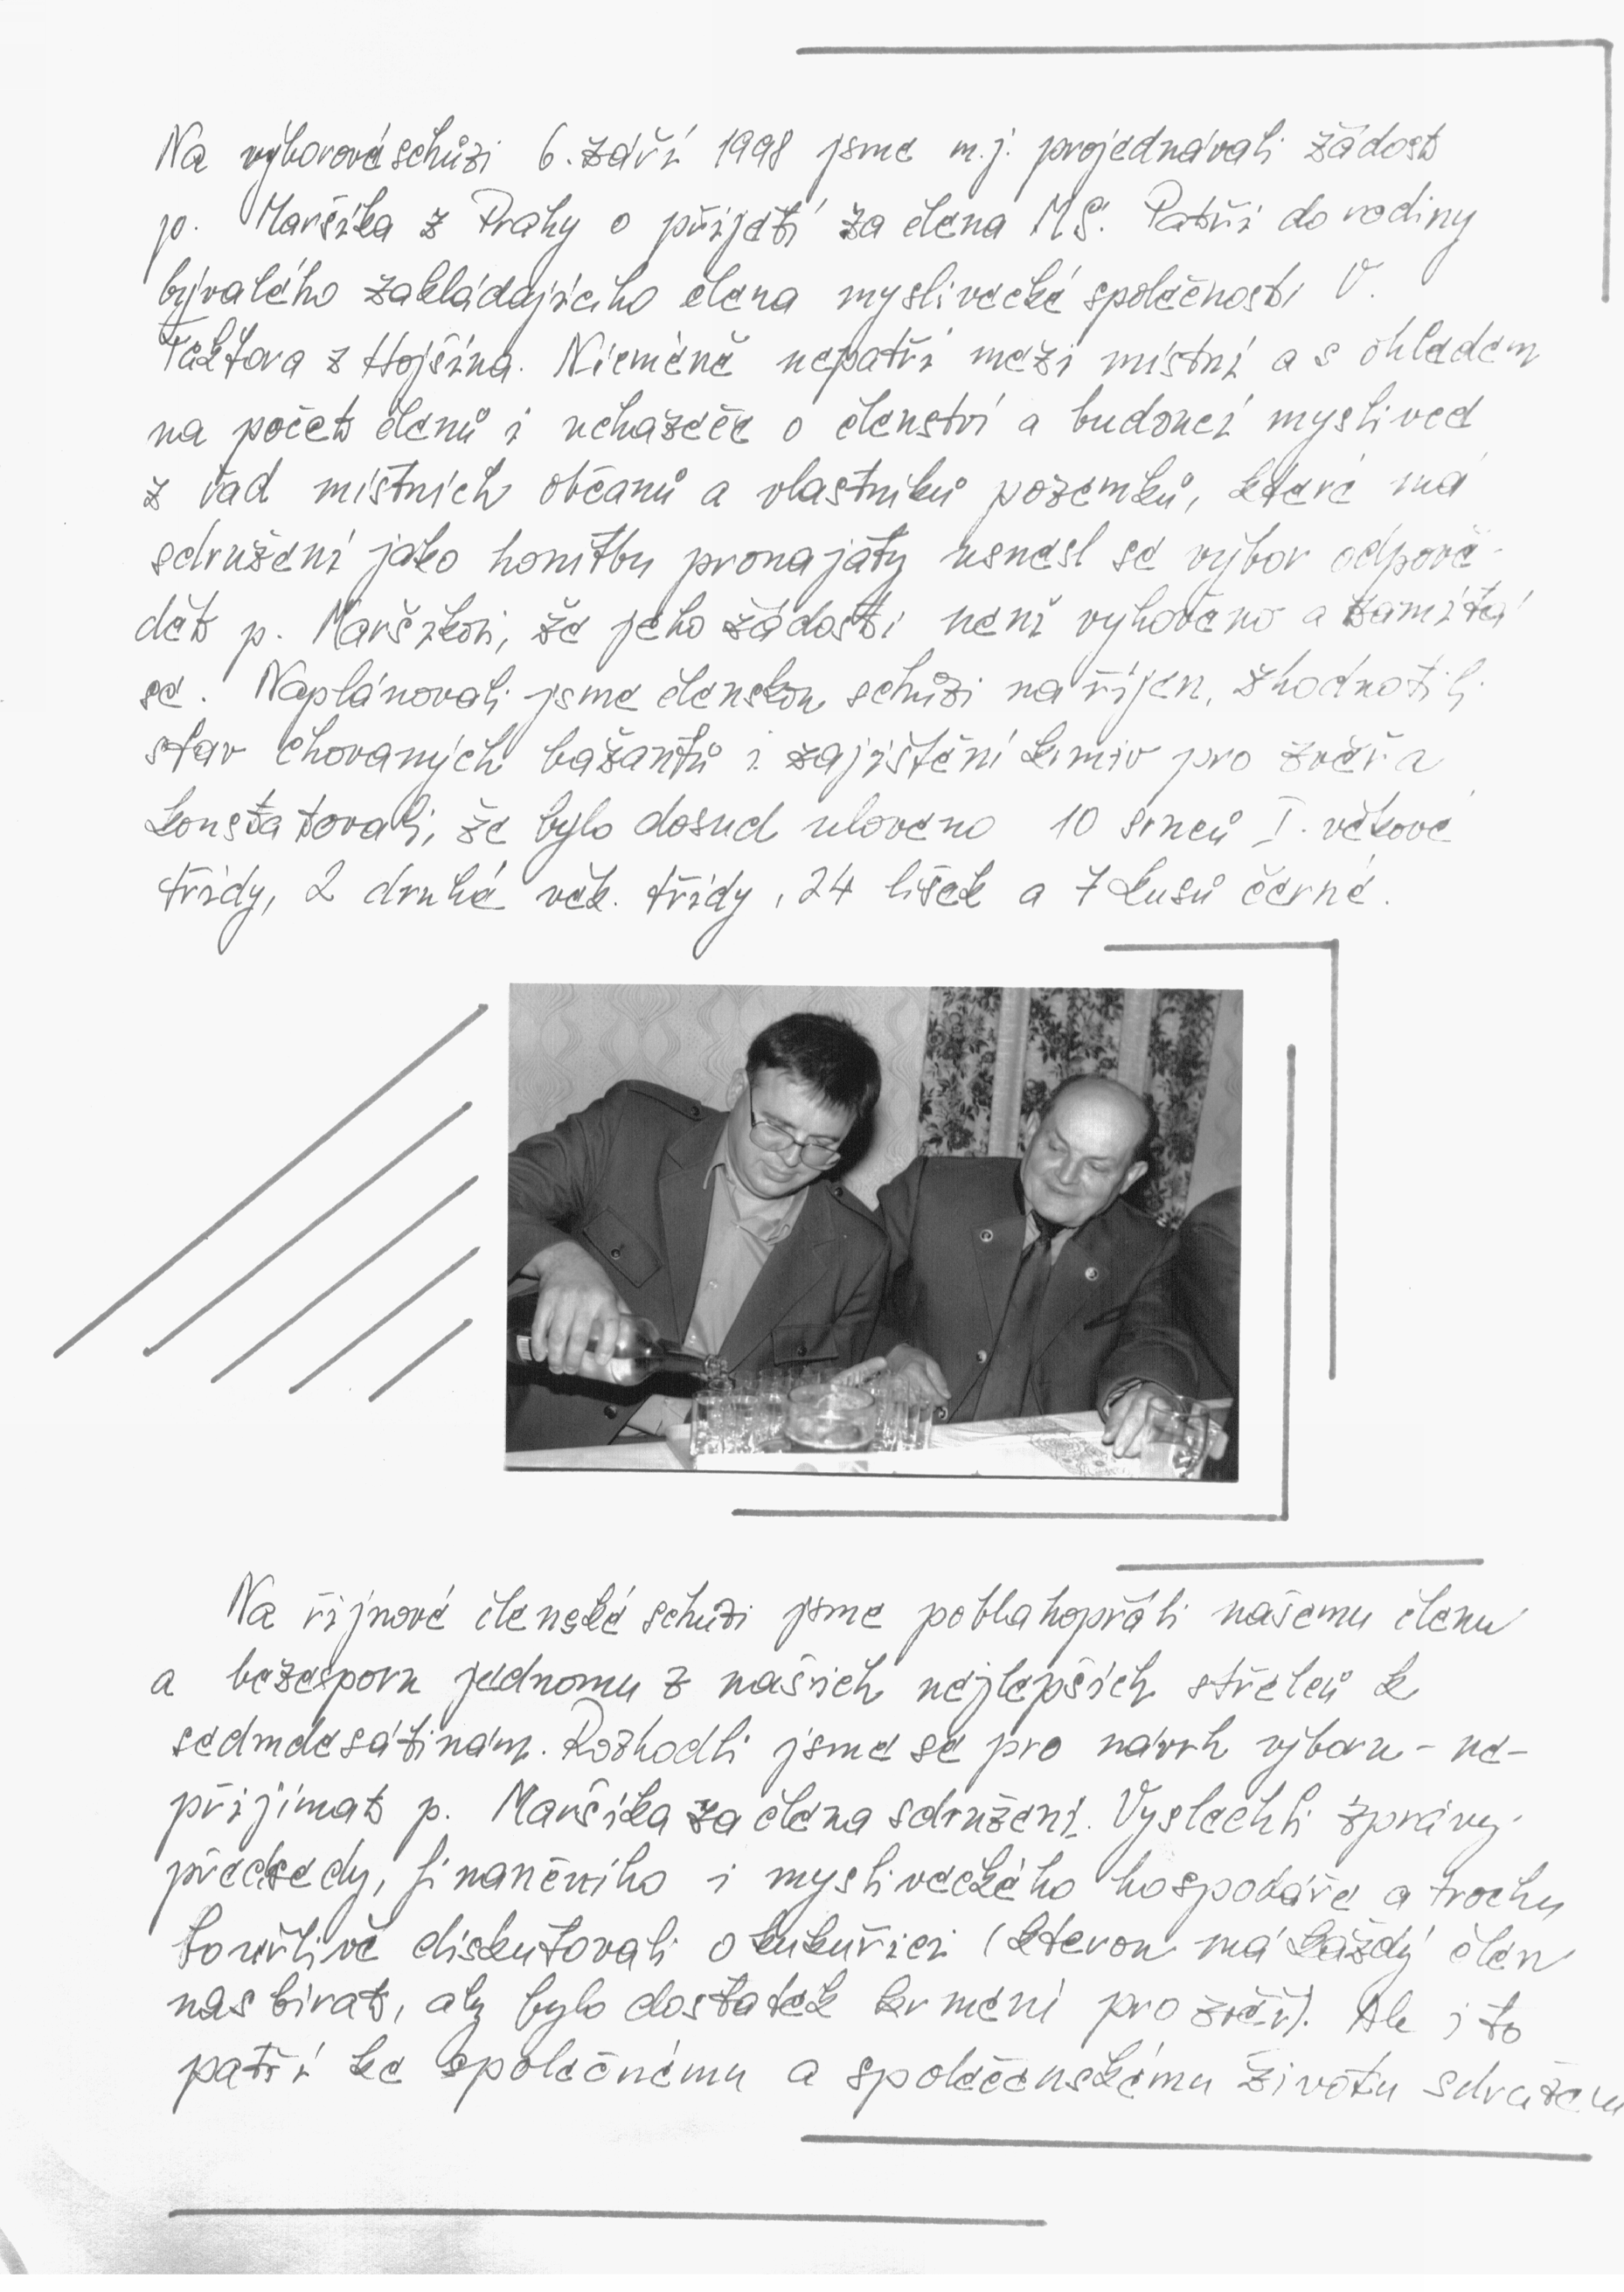 Na výborové schůzi 6. září 1998 jsme m.j. projednávali žádost
p. Maršíka z Prahy o přijetí za člena MS. Patří do rodiny
bývalého zakládajícího člena myslivecké společnosti V.
Faktora z Hojšína. Nicméně nepatří mezi místní a s ohledem
na počet členů i uchazeče o členství a budoucí myslivce
z řad místních občanů a vlastníků pozemků, které má
sdružení jako honitbu pronajaty usnesl se výbor odpově-
dět p. Maršíkovi, že jeho žádosti není vyhověno a zamítá
se. Naplánovali jsme členskou schůzi na říjen, zhodnotili
stav chovaných bažantů i zajištění krmiv pro zvěř a
konstatovali, že bylo dosud uloveno 10 srnců I. věkové
třídy, 2 druhé věk. třídy, 24 lišek a 7 kusů černé.
Na říjnové členské schůzi jsme poblahopřáli našemu členu
a bezesporu jednomu z našich nejlepších střelců k
sedmdesátinám. Rozhodli jsme se pro návrh výboru - ne-
přijímat p. Maršíka za člena sdružení. Vyslechli zprávy
předsedy, finančního i mysliveckého hospodáře a trochu
bouřlivě diskutovali o kukuřici (kterou má každý člen
nasbírat, aby bylo dostatek krmení pro zvěř). Ale i to
patří ke společnému a společenskému životu sdružení